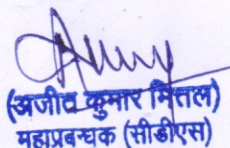 (अजीत कुमार मित्तल)
महाप्रबन्धक (सीडीएस)